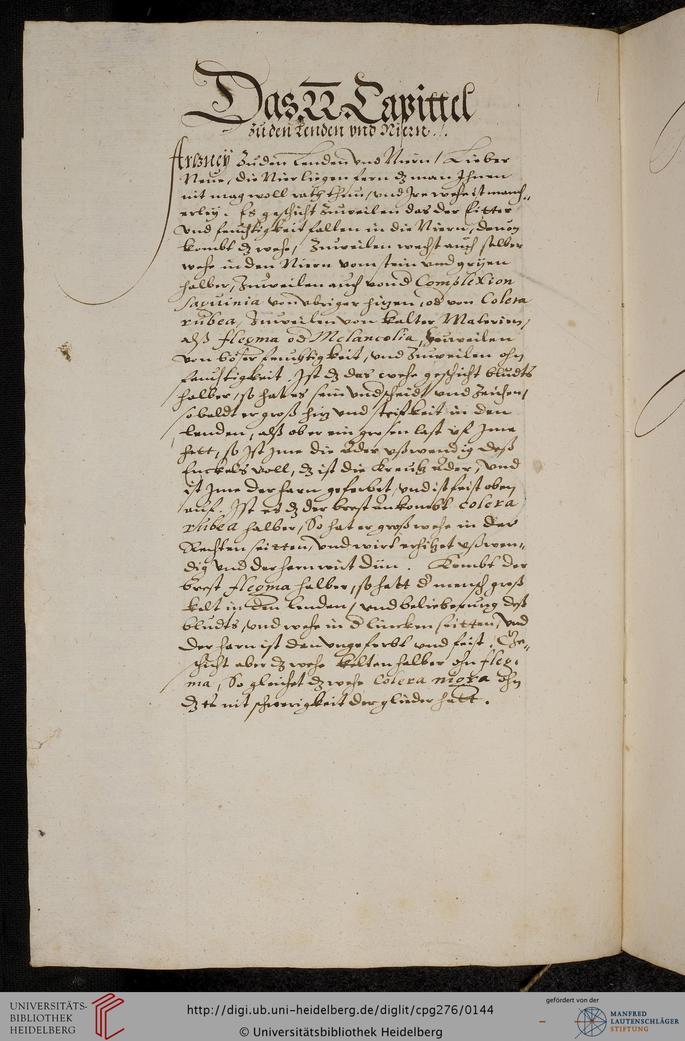 Das XX Capittel
zu den Lenden vnd Niern.
Artzney zu den Lenden vnd Niern / Lieber
Neue, die Nier liegen fern dz man Ihnen
nit mag woll rath thun, vnd Ire wehe ist manch¬
erley. Es geschicht zuweilen das der Eitter
vnd feuchtigkeit fallen in die Niern, dauon
kombt dz wehe, zuweilen wechst auch selber
wehe in den Niern vom stein vnd grijen
halber, Zuweilen auch von d Complexion
Sanuinia von vbriger hitzen, od von Colera
rubea, Zuweilen von kalter Materien,
alß flegma od Melancolia, Zuweilen
von böser feuchtigkeit, vnd Zuweilen ohn
feuchtigkeit. Ist dz das wehe geschicht bludts
halber, so hat es sein vndscheidt vnd Zeichen,
sobaldt er groß hitz vnd in den
Lenden, alß ob er ein grosen last vf Ime
hett, so Ist Ime die Ader vßwendig deß
Enckels voll, dz ist die Ader, vnd
ist Ime der harn geferbet, vnd ist feist oben
auf. Ist es dz der brest ankombt Colera
rubea halber, So hat er groß wehe in der
Rechten seitten, vnd wirt erhitzet vßwen¬
dig vnd der harn wirt dün. Kombt der
brest flegma halber, so hatt d mensch groß
kelt in den lenden, vnd deß
bludts, vnd wehe in d lincken seitten, vnd
der harn ist dan vngeferbt vnd feist. Ge¬
schicht aber dz wehe kelten halber ohn fleg¬
ma, So gleichet dz wehe Colera nigra ohn
dz es nit schwerigkeit der glieder hatt.
UNIVERSITÄTS-
BIBLIOTHEK
HEIDELBERG
http://digi.ub.uni-heidelberg.de/diglit/cpg276/0144
© Universitätsbibliothek Heidelberg
gefördert von der
MANFRED
LAUTENSCHLÄGER
STIFTUNG